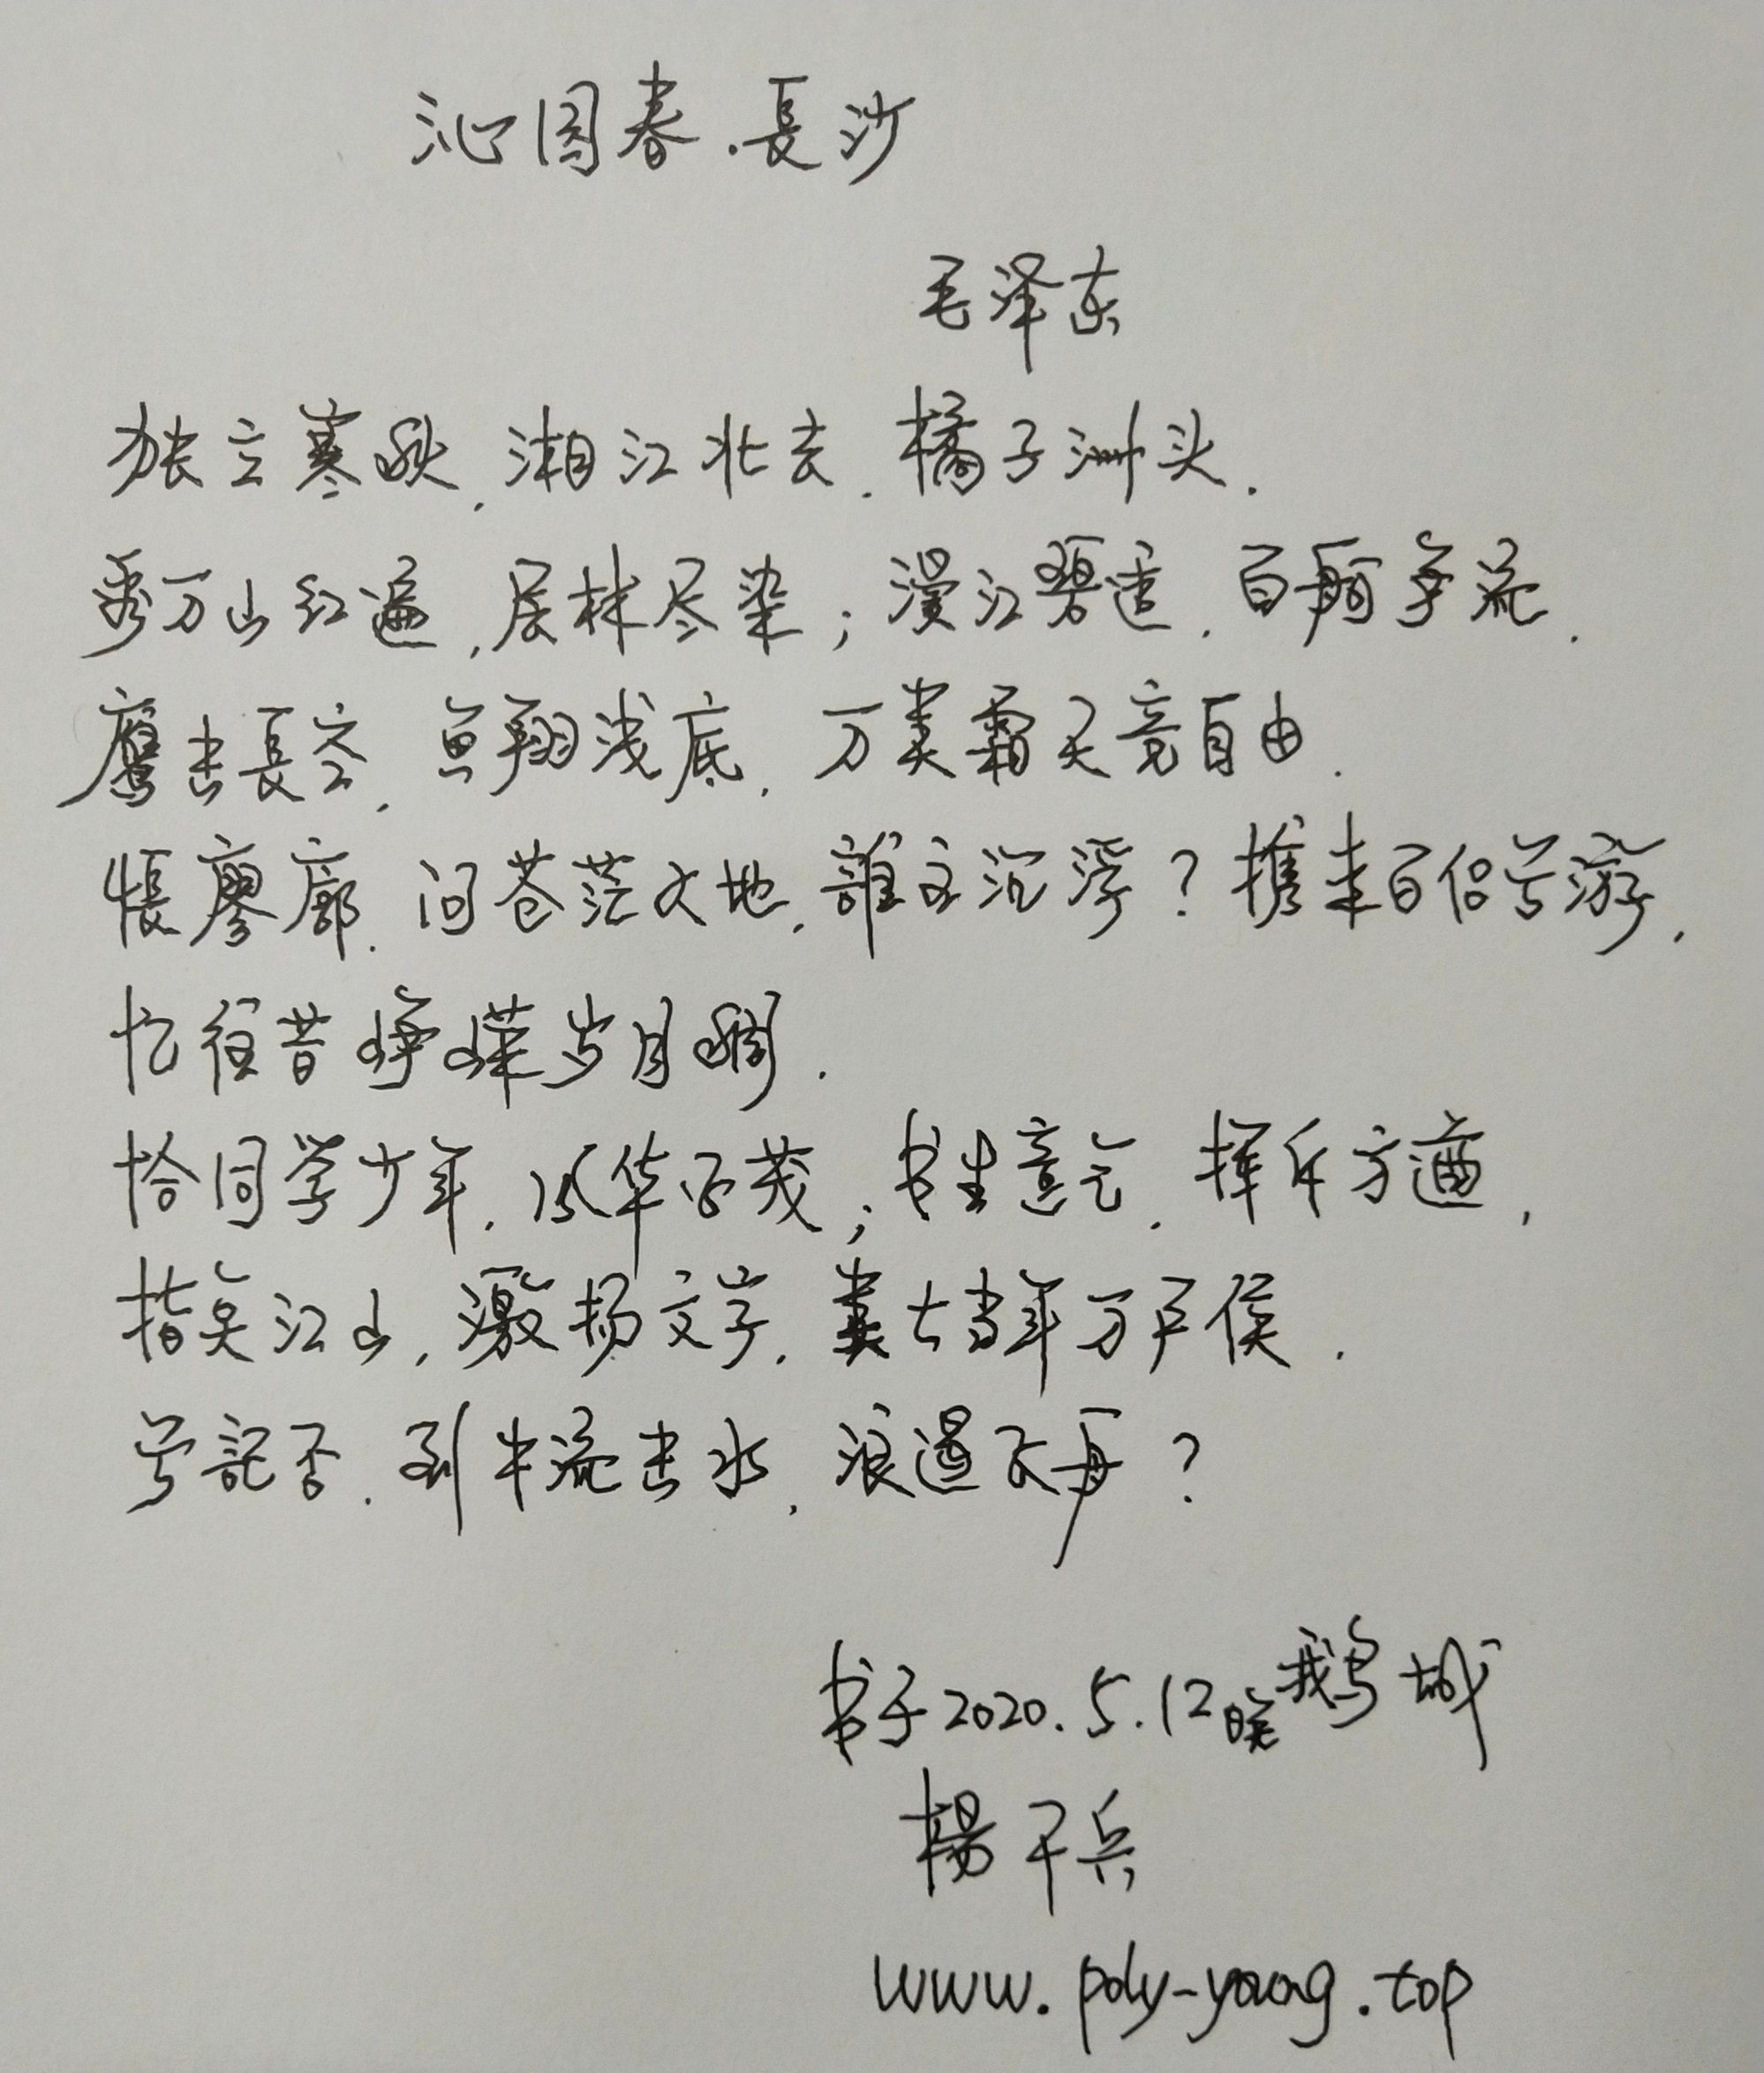 沁园春.長沙
毛泽东
独立寒秋,湘江北去.橘子洲头.
秀万山红遍,层林尽染;漫江碧透.百舸争流.
鹰击長空,鱼翔浅底.万类霜天竞自由.
悵廖廓.问苍茫大地.誰主沉浮?携来百侣兮游,
忆往昔峥嵘岁月稠.
恰同学少年.风华正茂;书生意气.挥斥方遒,
指点江山,激扬文字.粪土当年万户侯.
兮記否.到中流击水,浪遏飞舟?
书于2020.5.12晚鹅城
楊千兵
www.poly-yang.top